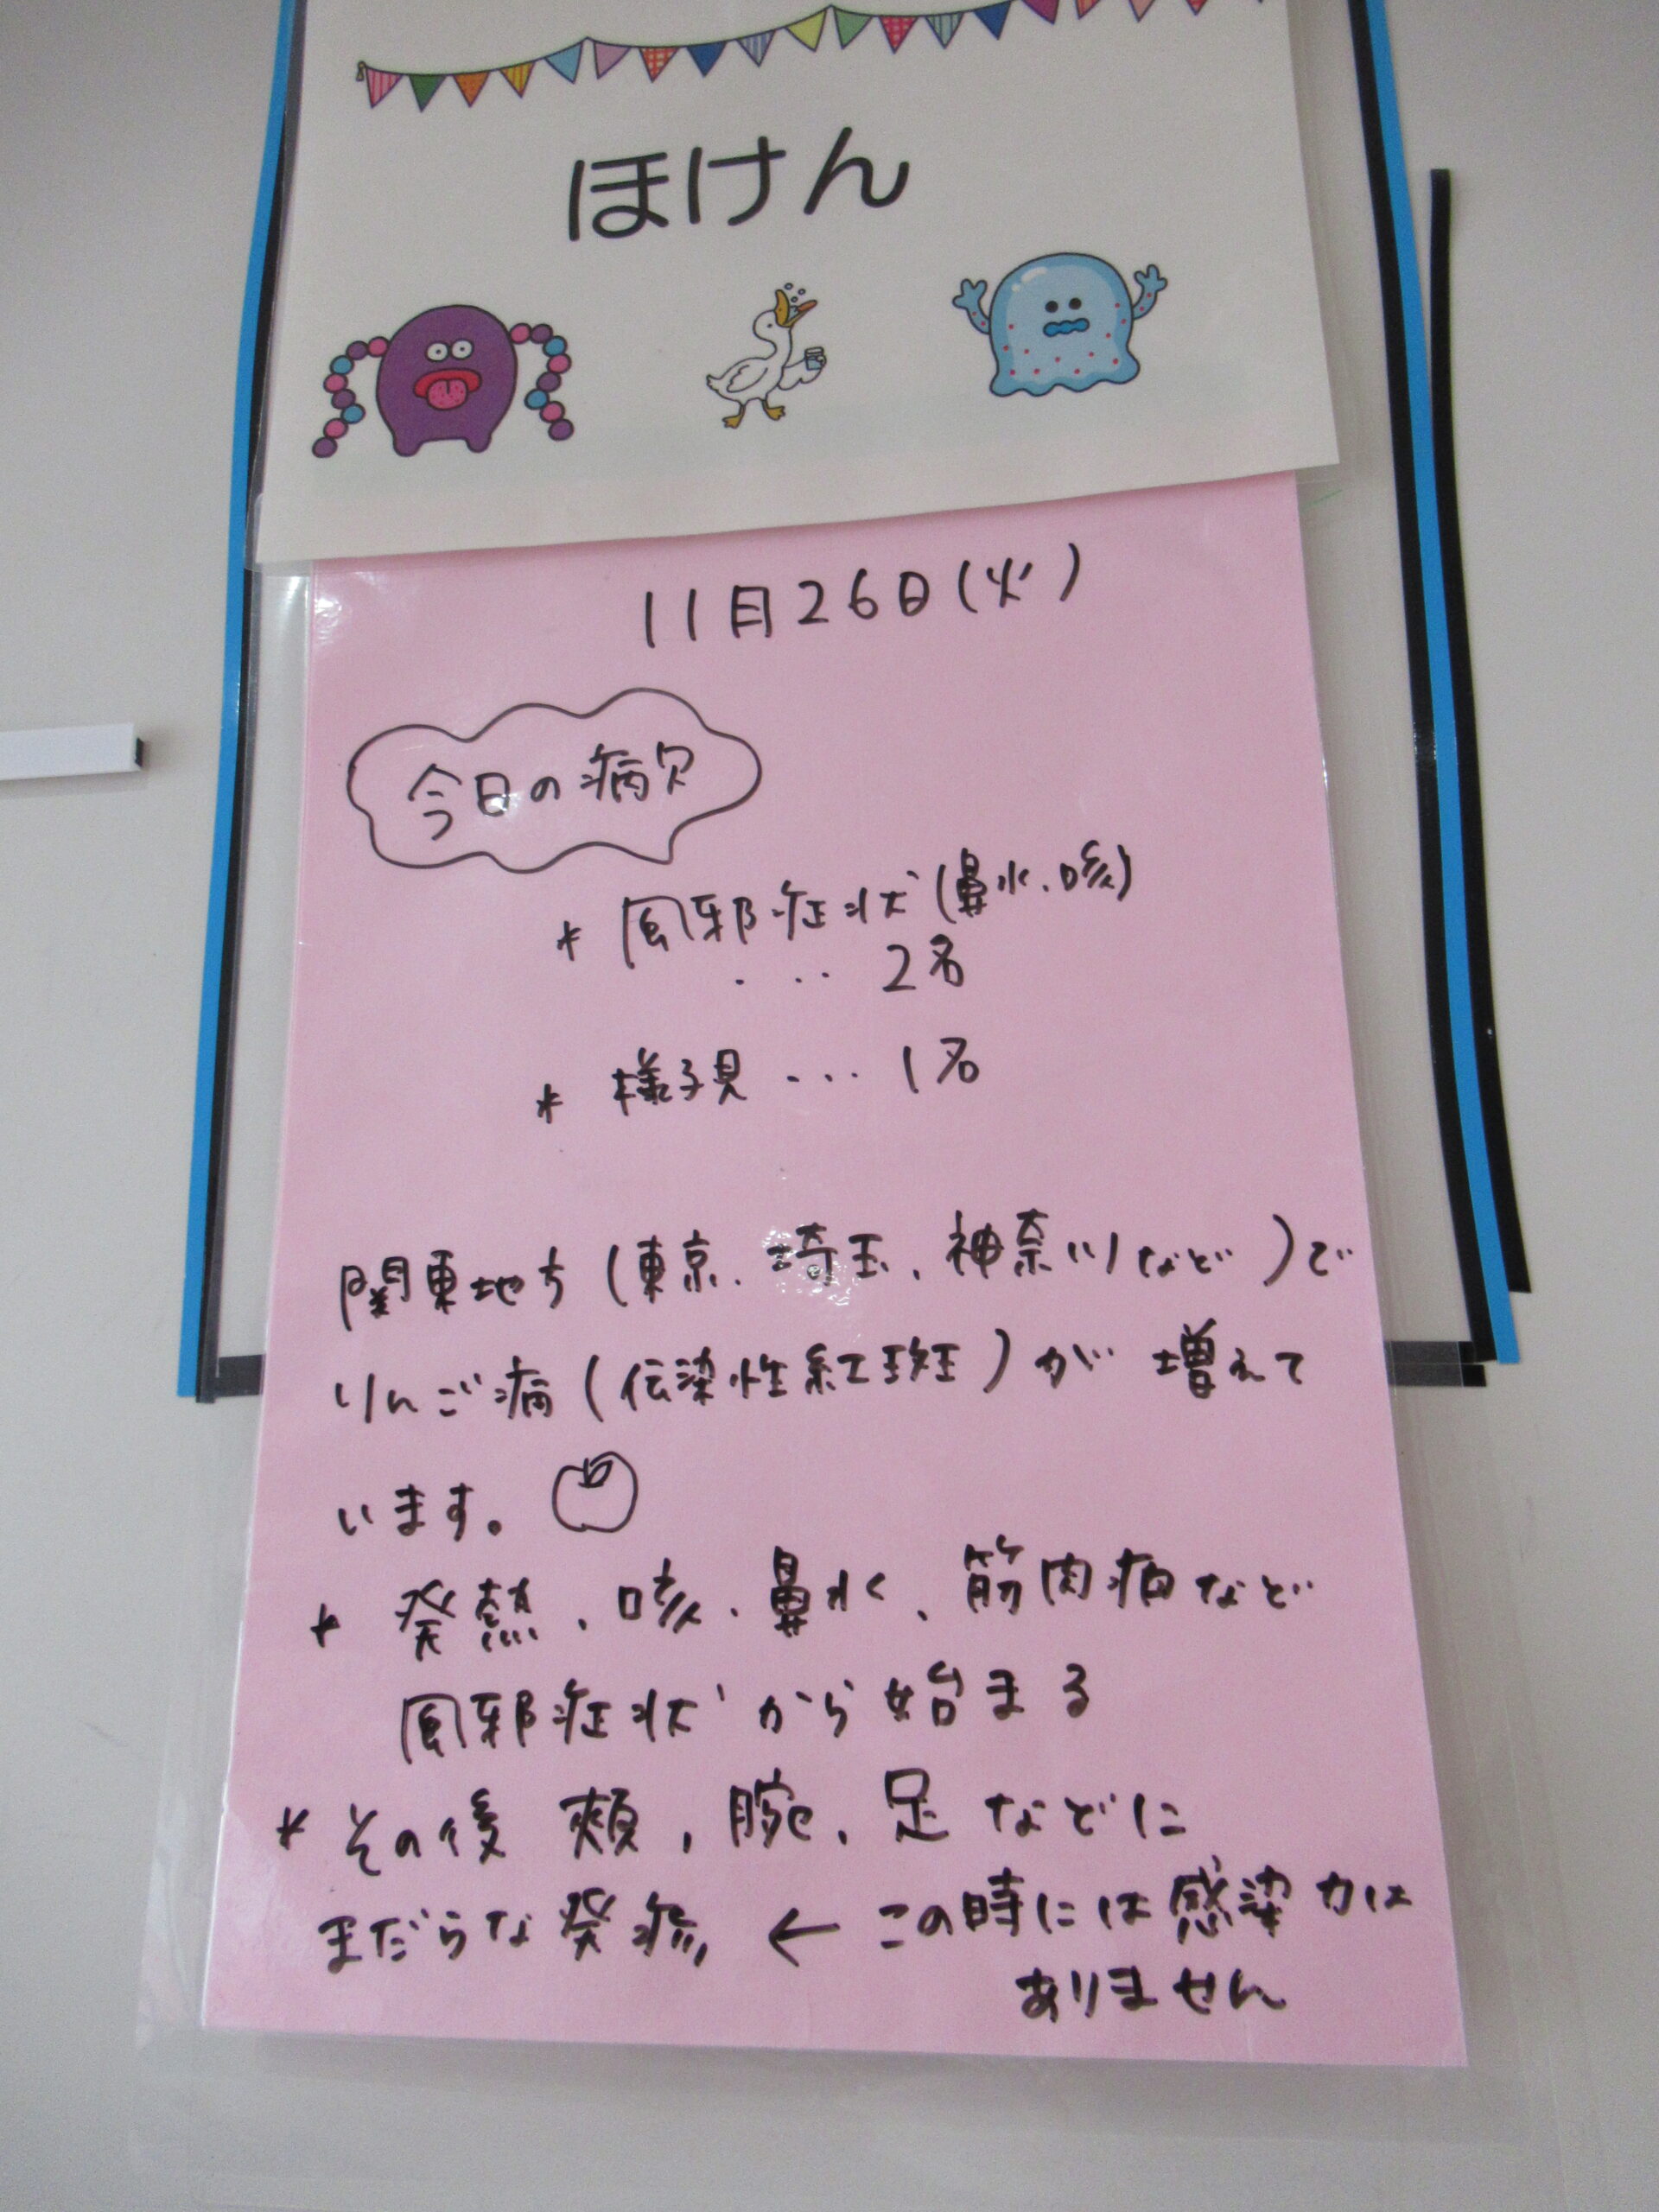 ほけん
11月26日(火)
今日の病欠
* 風邪症状(鼻水、咳)
・・・ 2名
* 様子見 ・・・ 1名
関東地方(東京、埼玉、神奈川など)で
りんご病(伝染性紅斑)が増えて
います。
* 発熱、咳、鼻水、筋肉痛など
風邪症状から始まる
* その後 頬、腕、足などに
まだらな発疹 ← この時には感染力は
ありません